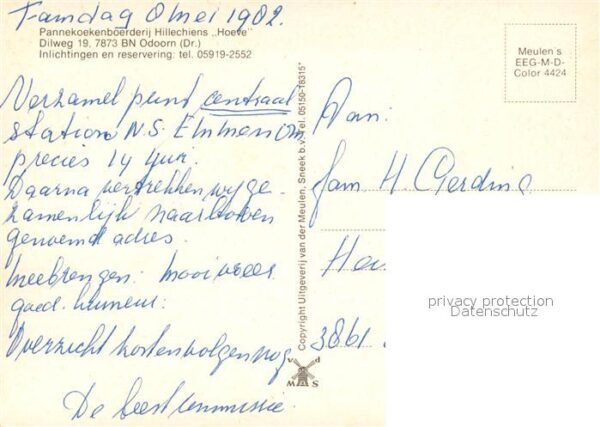 mei 1982.
Pannekoekenboerderij Hillechiens „Hoeve"
Dilweg 19, 7873 BN Odoorn (Dr.)
Inlichtingen en reservering: tel. 05919-2552
Meulen's
EEG-M-D-
Color 4424
Verzamel punt centraal
station N.S. Emmen om
precies 14 uur.
Daarna vertrekken wij ge-
zamenlijk naar boven
genoemd adres.
Meebrengen: mooi weer
goed humeur.
Overzicht kosten volgen nog
De feestcommissie.
Copyright Uitgeverij van der Meulen, Sneek b.v. Tel. 05150-18315*
v d
MAS
Aan:
fam H. Gerding
3861
privacy protection
Datenschutz